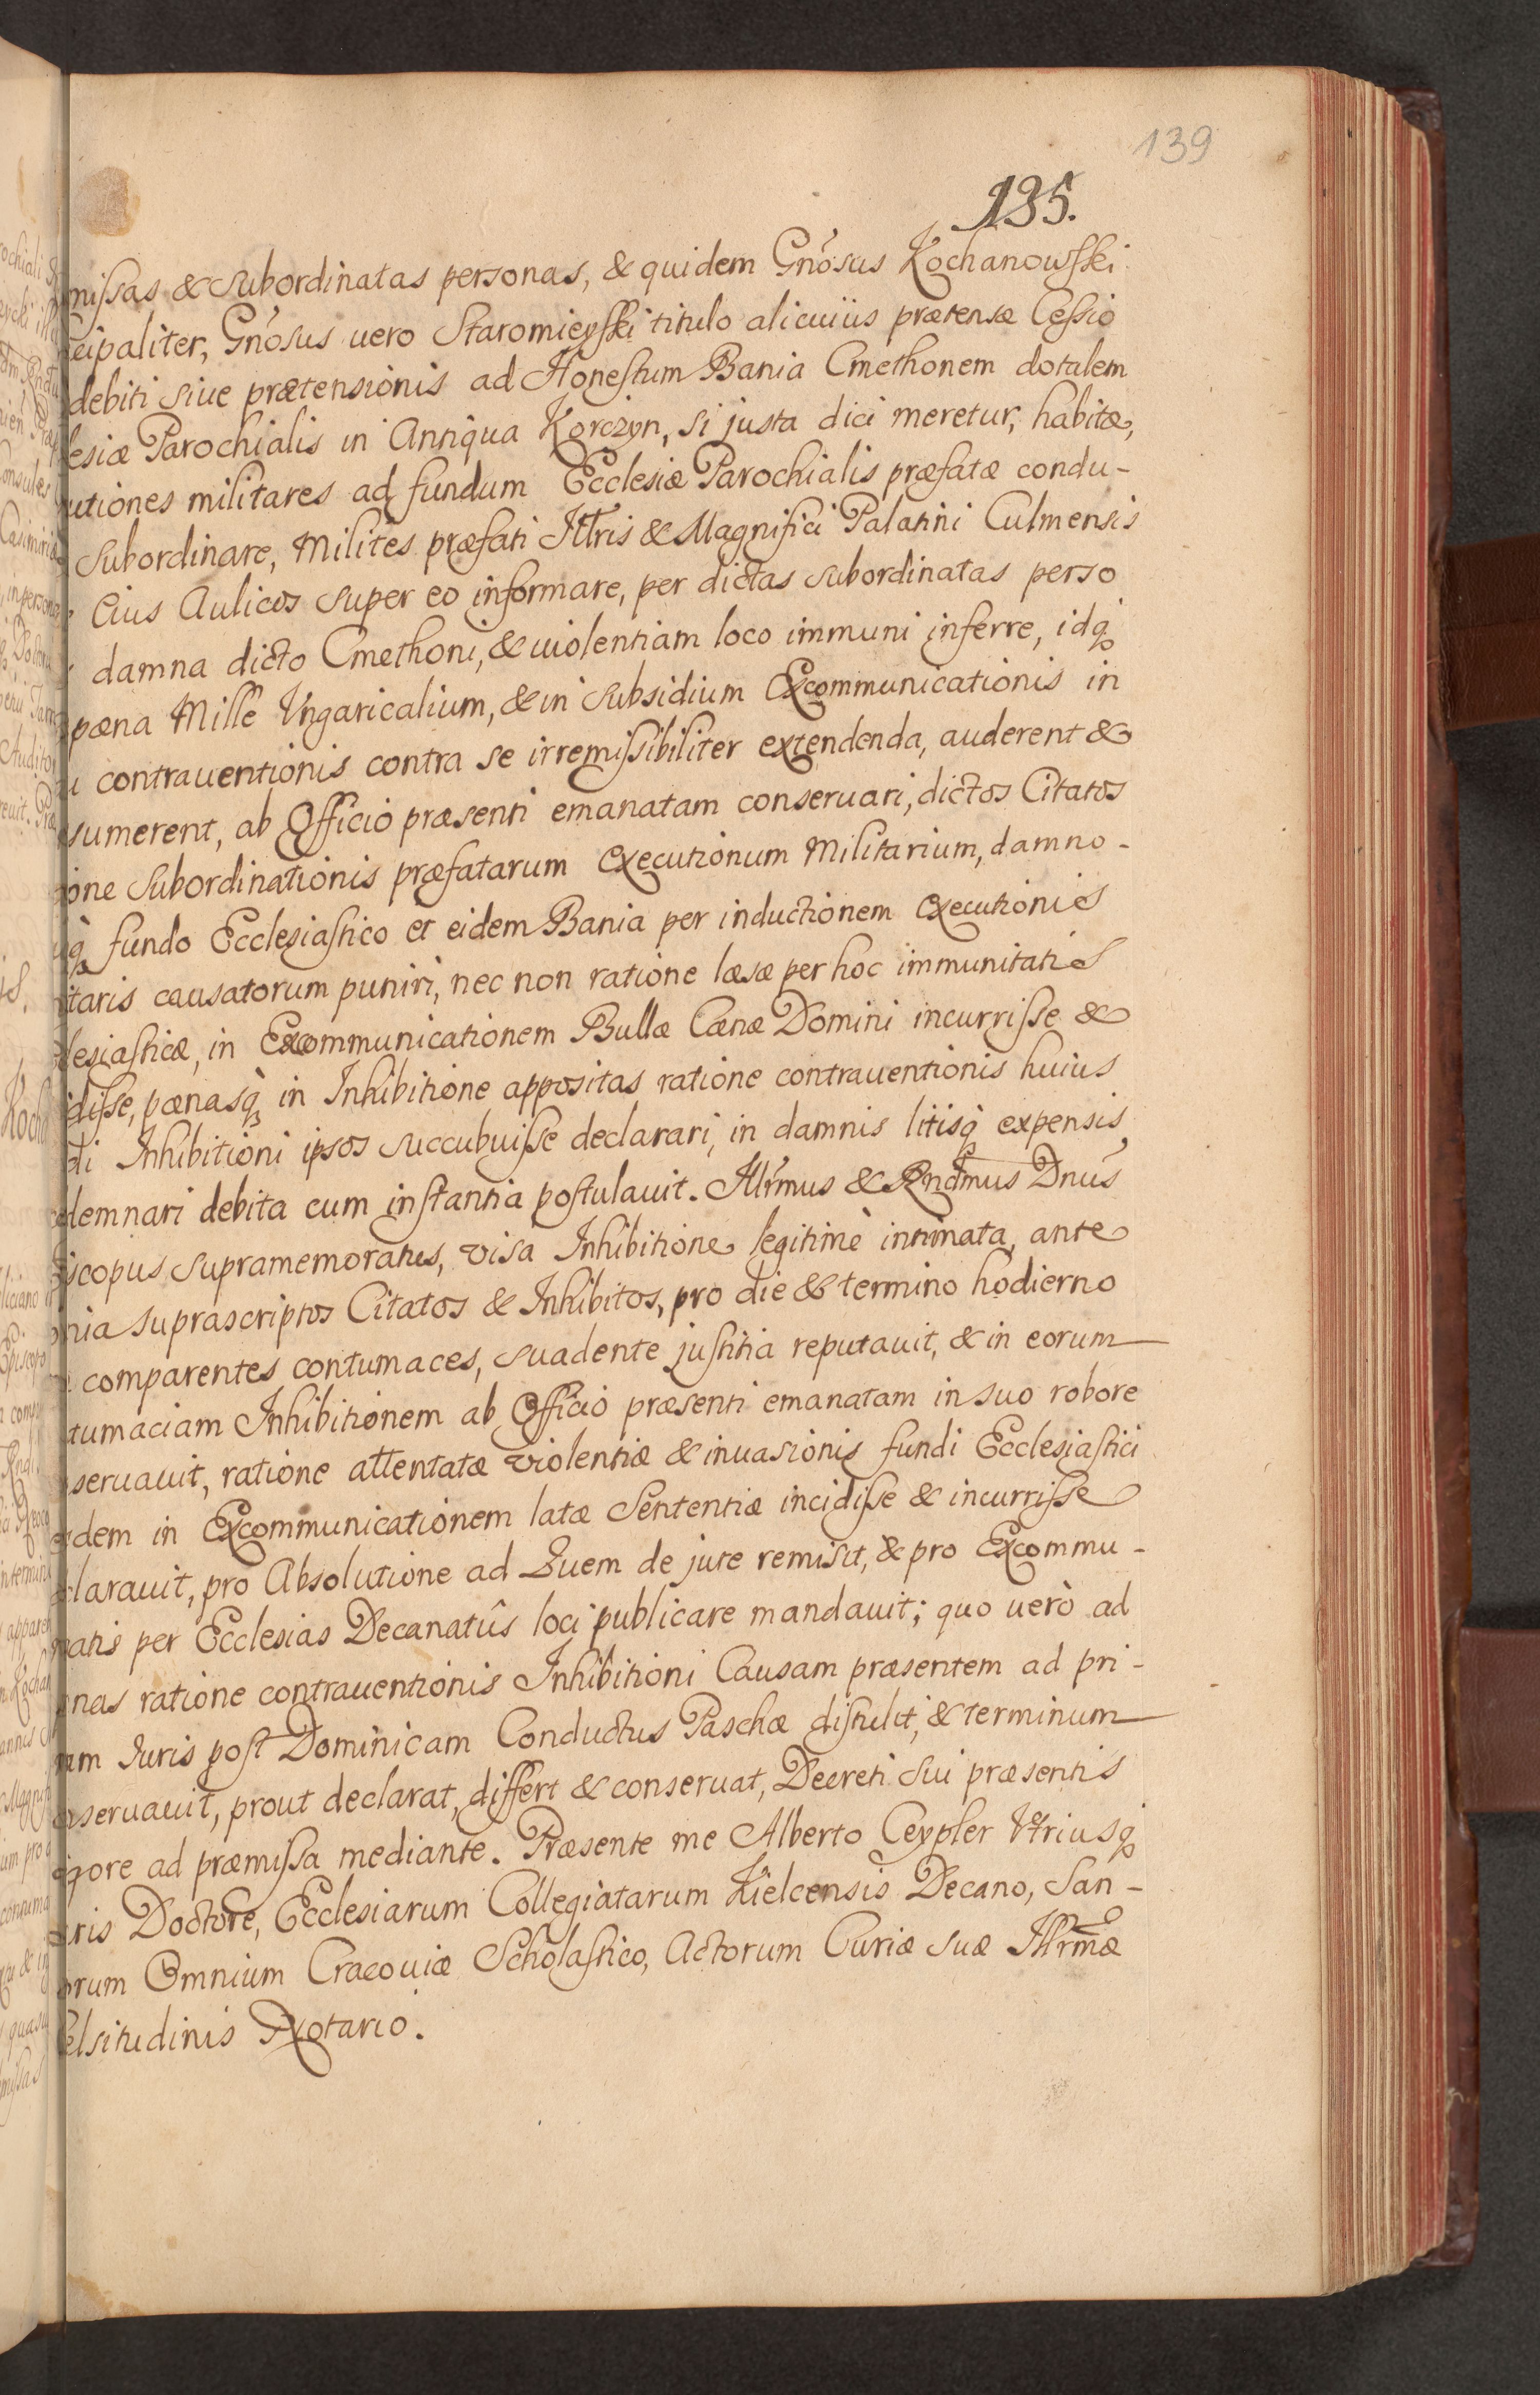 139
135.
missas & subordinatas personas, & quidem Gnõsus Kochanowski
cipaliter, Gnõsus uero Staromieyski titulo alicuius prætensæ Cessio
debiti siue prætensionis ad Honestum Bania Cmethonem dotalem
lesiæ Parochialis in Antiqua Korczyn, si justa dici meretur, habitæ,
utiones militares ad fundum Ecclesiæ Parochialis præfatæ condu-
subordinare, Milites præfati Illtris & Magnifici Palatini Culmensis
Eius Aulicos super eo informare, per dictas subordinatas perso
damna dicto Cmethoni, & uiolentiam loco immuni inferre, idq̃
pæna Mille Vngaricalium, & in subsidium Excommunicationis in
contrauentionis contra se irremissibiliter extendenda, auderent &
sumerent, ab Officio præsenti emanatam conseruari, dictos Citatos
ione subordinationis præfatarum executionum Militarium, damno-
uq̃ fundo Ecclesiastico et eidem Bania per inductionem executionis
itaris causatorum puniri, nec non ratione læsæ per hoc immunitatis
lesiasticæ, in Excommunicationem Bullæ Cænæ Domini incurrisse &
idisse, pænasq̃ in Inhibitione appositas ratione contrauentionis huius
di Inhibitioni ipsos succubuisse declarari, in damnis litisq̃ expensis
demnari debita cum instantia postulauit. Illr̃mus & Rnd̃mus Dnus̃
iscopus supramemoratus, visa Inhibitione legitimè intimata, ante
nia suprascriptos Citatos & Inhibitos, pro die & termino hodierno
comparentes contumaces, suadente justitia reputauit, & in eorum
tumaciam Inhibitionem ab Officio præsenti emanatam in suo robore
seruauit, ratione attentatæ violentiæ & inuasionis fundi Ecclesiastici
dem in Excommunicationem latæ Sententiæ incidisse & incurrisse
clarauit, pro Absolutione ad Quem de jure remisit, & pro Excommu-
catis per Ecclesias Decanatûs loci publicare mandauit; quo uerò ad
nas ratione contrauentionis Inhibitioni Causam præsentem ad pri-
am Iuris post Dominicam Conductus Paschæ distulit, & terminum
seruauit, prout declarat, differt & conseruat, Decreti sui præsentis
gore ad præmissa mediante. Præsente me Alberto Ceypler Vtriusq̃
uris Doctore, Ecclesiarum Collegiatarum Kielcensis Decano, San-
orum Omnium Cracouiæ Scholastico, Actorum Curiæ suæ Illrm̃æ
Celsitudinis Notario.